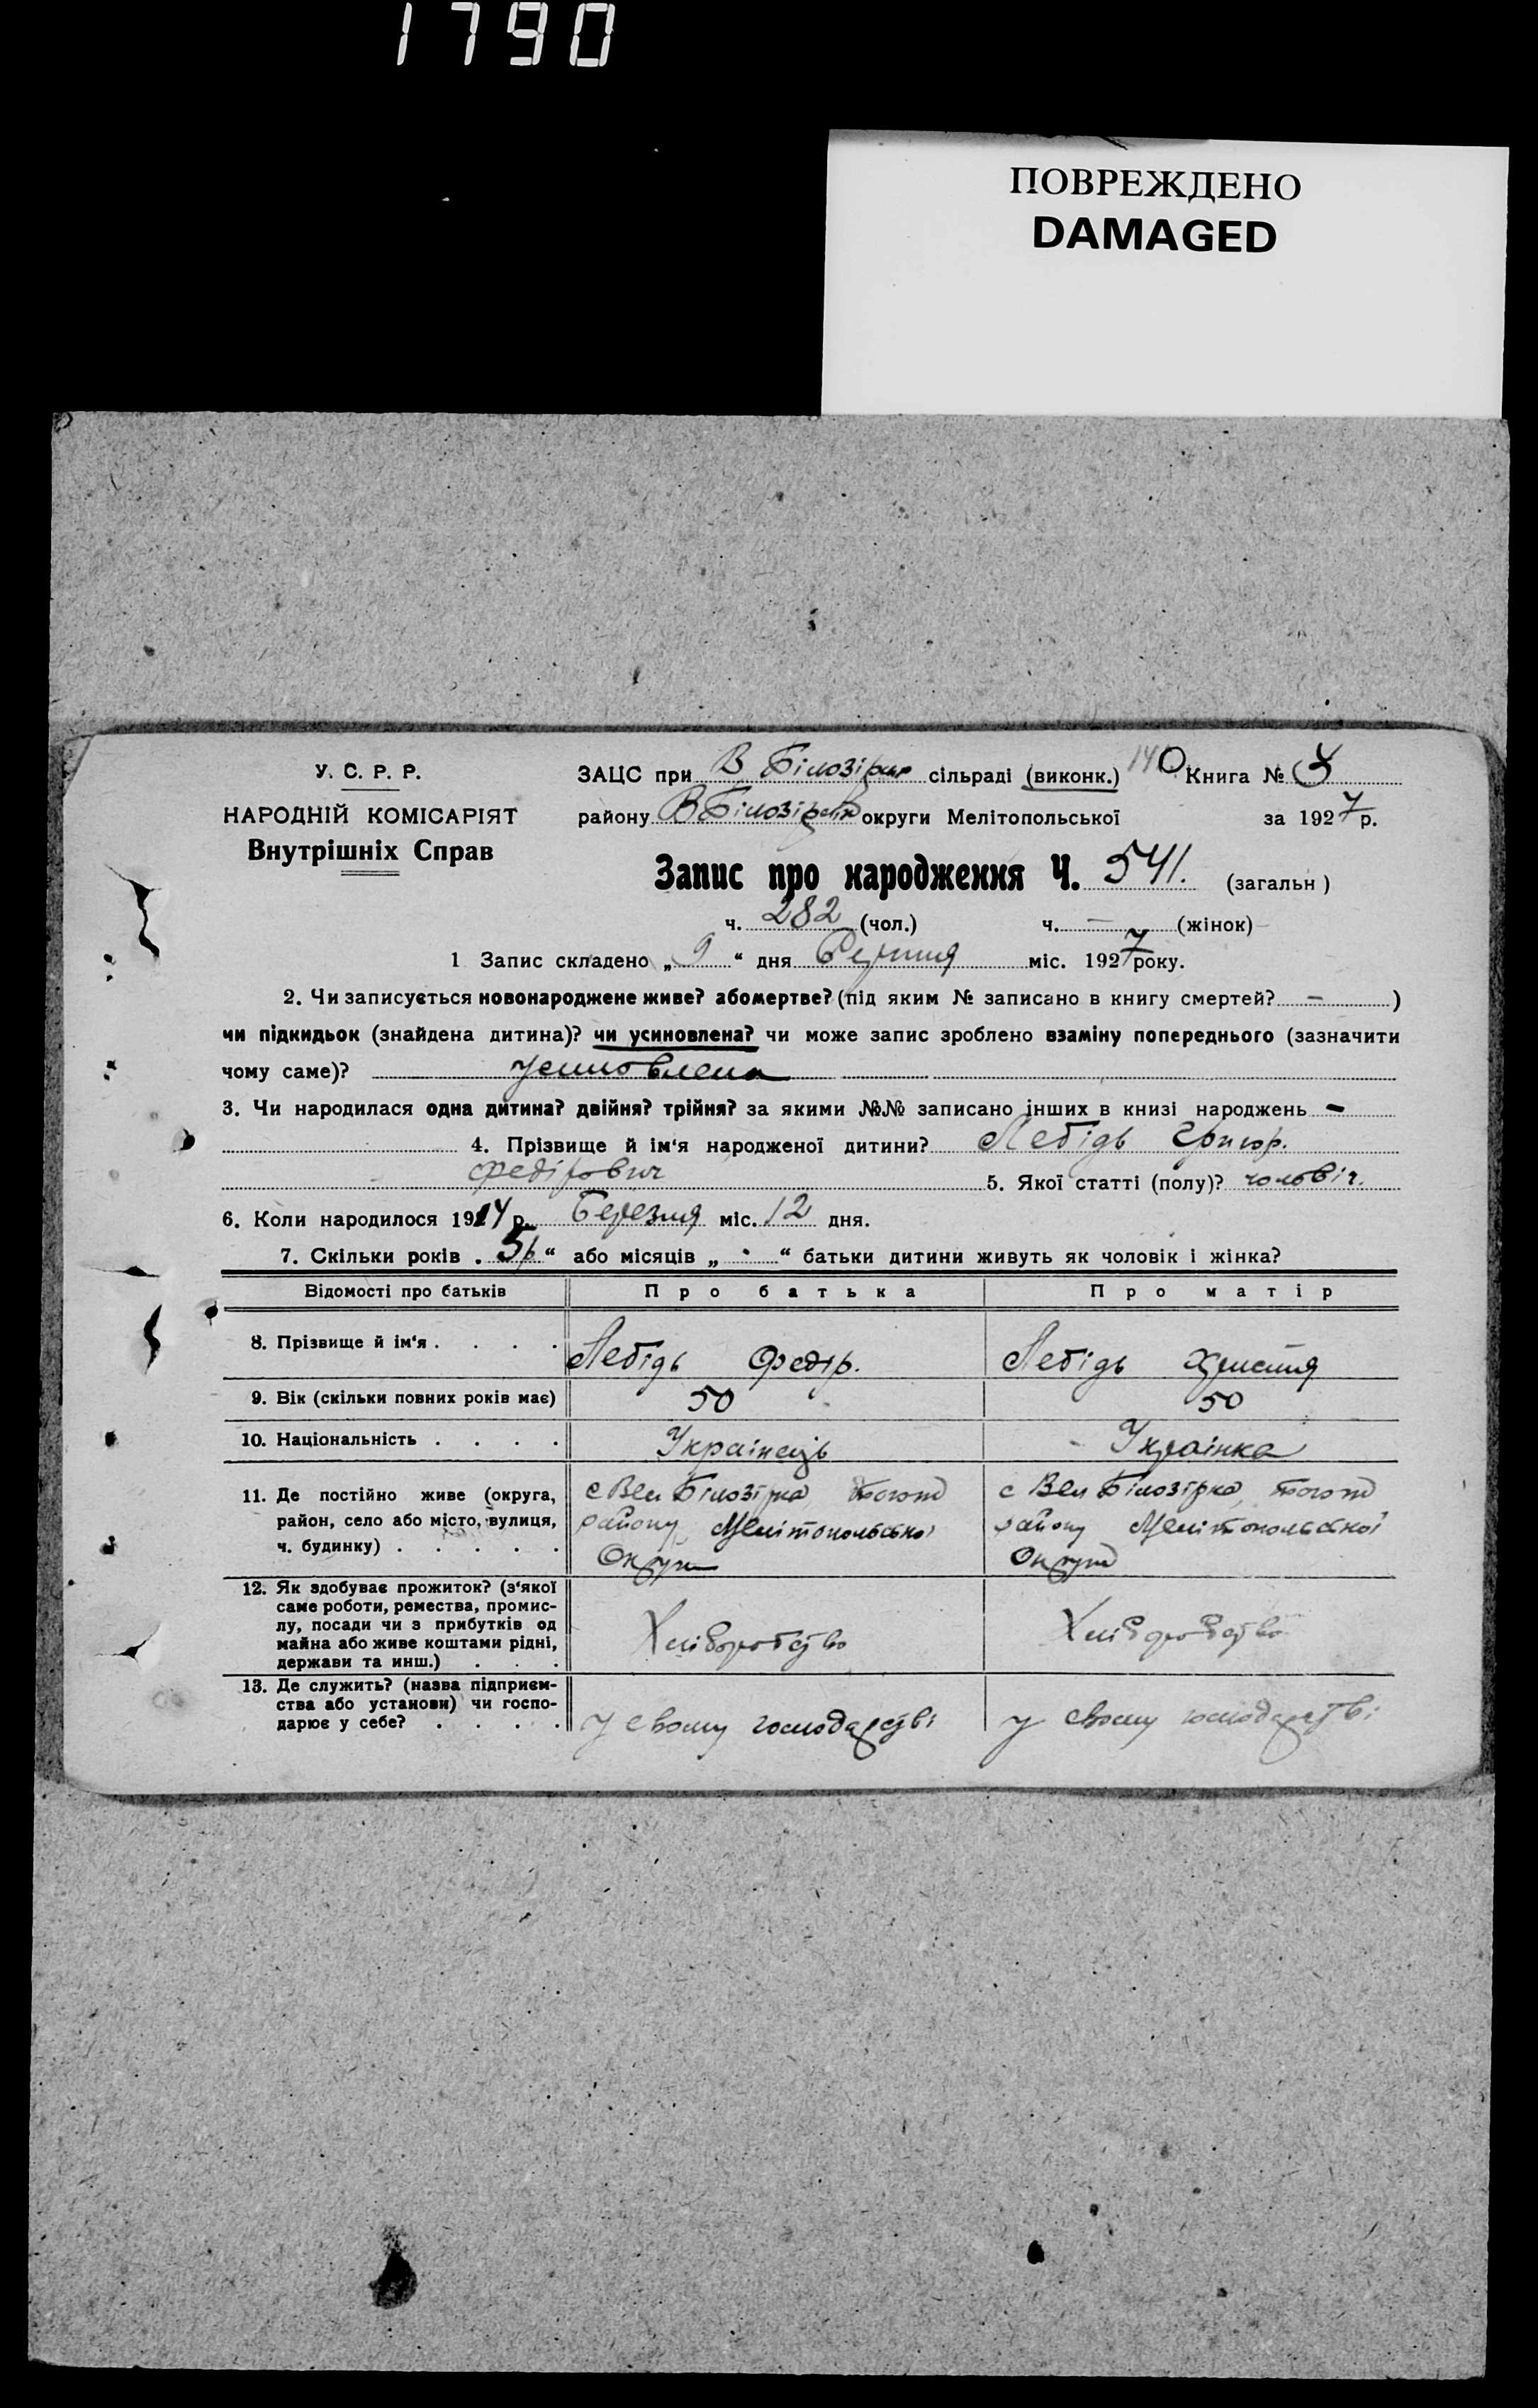 1790
ПОВРЕЖДЕНО
DAMAGED
У. С. Р. Р.
НАРОДНІЙ КОМІСАРІЯТ
Внутрішніх Справ
ЗАЦС при В Білозірк сільраді (виконк.) 140 Книга № 3
району В Білозірськ округи Мелітопольської за 1927 р.
Запис про народження Ч. 541. (загальн)
ч. 282 (чол.) ч. — (жінок)
1 Запис складено „ 9 “ дня Серпня міс. 1927 року.
2. Чи записується новонароджене живе? або мертве? (під яким № записано в книгу смертей? — )
чи підкидьок (знайдена дитина)? чи усиновлена? чи може запис зроблено взаміну попереднього (зазначити
чому саме)? Усиновлена
3. Чи народилася одна дитина? двійня? трійня? за якими №№ записано інших в книзі народжень —
4. Прізвище й ім‘я народженої дитини? Лебідь Григор.
Федірович 5. Якої статті (полу)? чоловіч.
6. Коли народилося 1914 р. Березня міс. 12 дня.
7. Скільки років . 5 “ або місяців „ · “ батьки дитини живуть як чоловік і жінка?
Відомості про батьків Про батька Про матір
8. Прізвище й ім‘я . . . . Лебідь Федір. Лебідь Христя
9. Вік (скільки повних років має) 50 50
10. Національність . . . . Українець Українка
11. Де постійно живе (округа,
район, село або місто, вулиця,
ч. будинку) . . . . .
с Вел Білозірка того ж
району Мелітопольської
Округи
с Вел Білозірка того ж
району Мелітопольської
Округи
12. Як здобуває прожиток? (з‘якої
саме роботи, ремества, промис-
лу, посади чи з прибутків од
майна або живе коштами рідні,
держави та инш.) . . .
Хліборобство
Хліборобство
13. Де служить? (назва підприєм-
ства або установи) чи госпо-
дарює у себе? . . . .
у своему господарстві
у своему господарстві